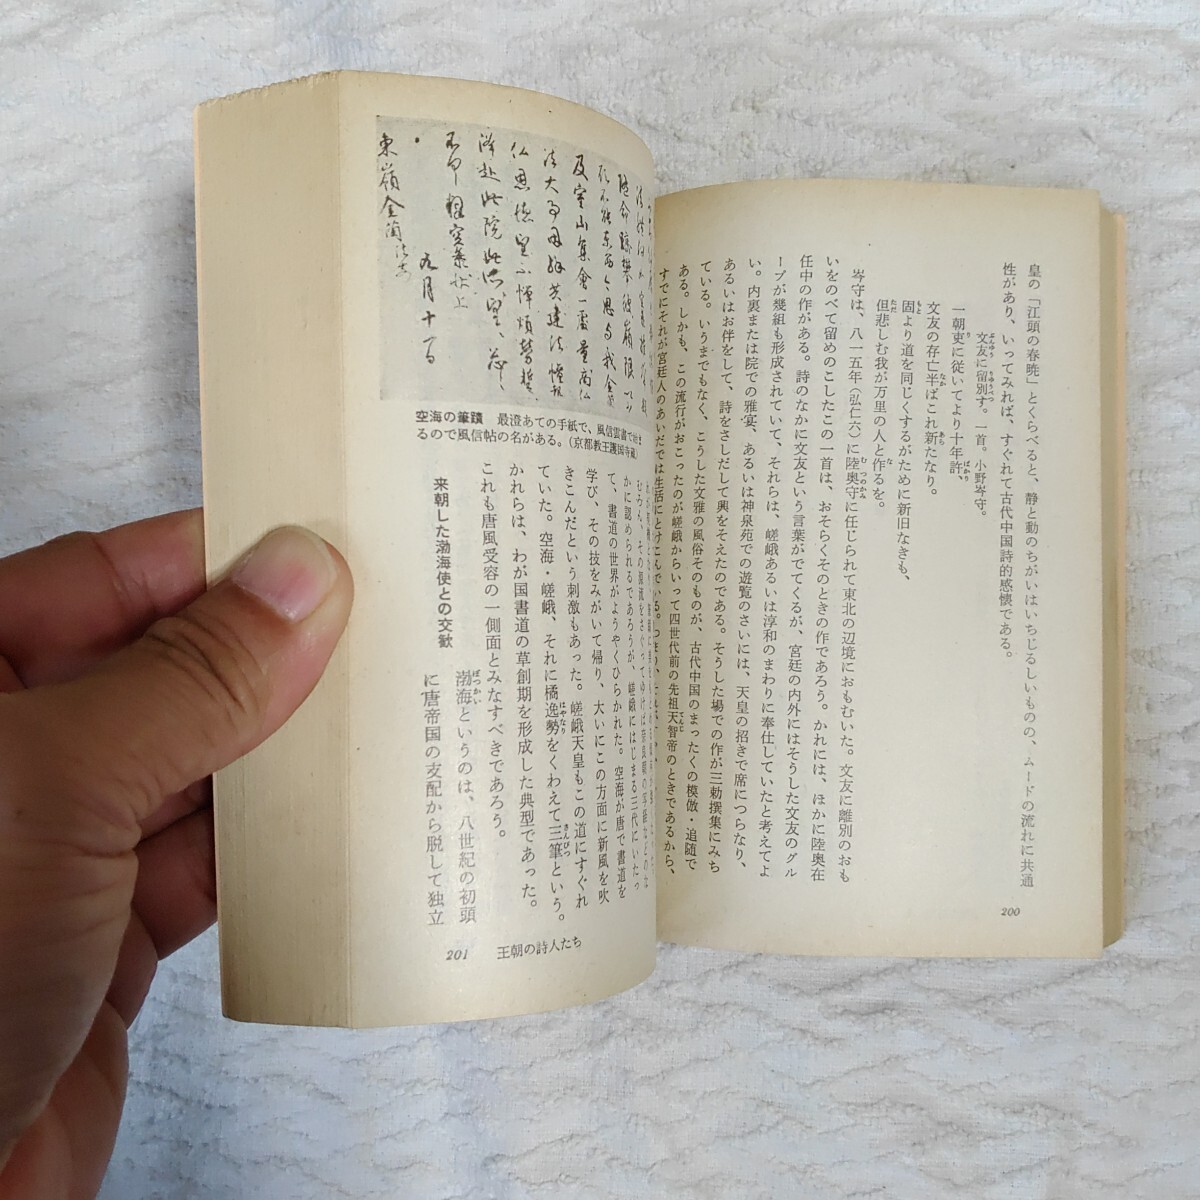 皇の「江頭の春暁」とくらべると、静と動のちがいはいちじるしいものの、ムードの流れに共通
性があり、いってみれば、すぐれて古代中国詩的感懐である。
文友に留別す。一首。小野岑守。
一朝吏に従いてより十年許、
文友の存亡半ばこれ新たなり。
固より道を同じくするがために新旧なきも、
但悲しむ我が万里の人と作るを。
岑守は、八一五年（弘仁六）に陸奥守に任じられて東北の辺境におもむいた。文友に離別のおも
いをのべて留めのこしたこの一首は、おそらくそのときの作であろう。かれには、ほかに陸奥在
任中の作がある。詩のなかに文友という言葉がでてくるが、宮廷の内外にはそうした文友のグル
ープが幾組も形成されていて、それらは、嵯峨あるいは淳和のまわりに奉仕していたと考えてよ
い。内裏または院での雅宴、あるいは神泉苑での遊覧のさいには、天皇の招きで席につらなり、
あるいはお伴をして、詩をさしだして興をそえたのである。そうした場での作が三勅撰集にみち
ている。いうまでもなく、こうした文雅の風俗そのものが、古代中国のまったくの模倣・追随で
ある。しかも、この流行がおこったのが嵯峨からいって四世代前の先祖天智帝のときであるから、
すでにそれが宮廷人のあいだでは生活にとけこんでいる。
200
空海の筆蹟　最澄あての手紙で、風信雲書で始ま
るので風信帖の名がある。（京都教王護国寺蔵）
かに認められるであろうが、嵯峨にはじまる三代にいたっ
て、書道の世界がようやくひらかれた。空海が唐で書道を
学び、その技をみがいて帰り、大いにこの方面に新風を吹
きこんだという刺激もあった。嵯峨天皇もこの道にすぐれ
ていた。空海・嵯峨、それに橘逸勢をくわえて三筆という。
かれらは、わが国書道の草創期を形成した典型であった。
これも唐風受容の一側面とみなすべきであろう。
来朝した渤海使との交歓
渤海というのは、八世紀の初頭
に唐帝国の支配から脱して独立
201　王朝の詩人たち